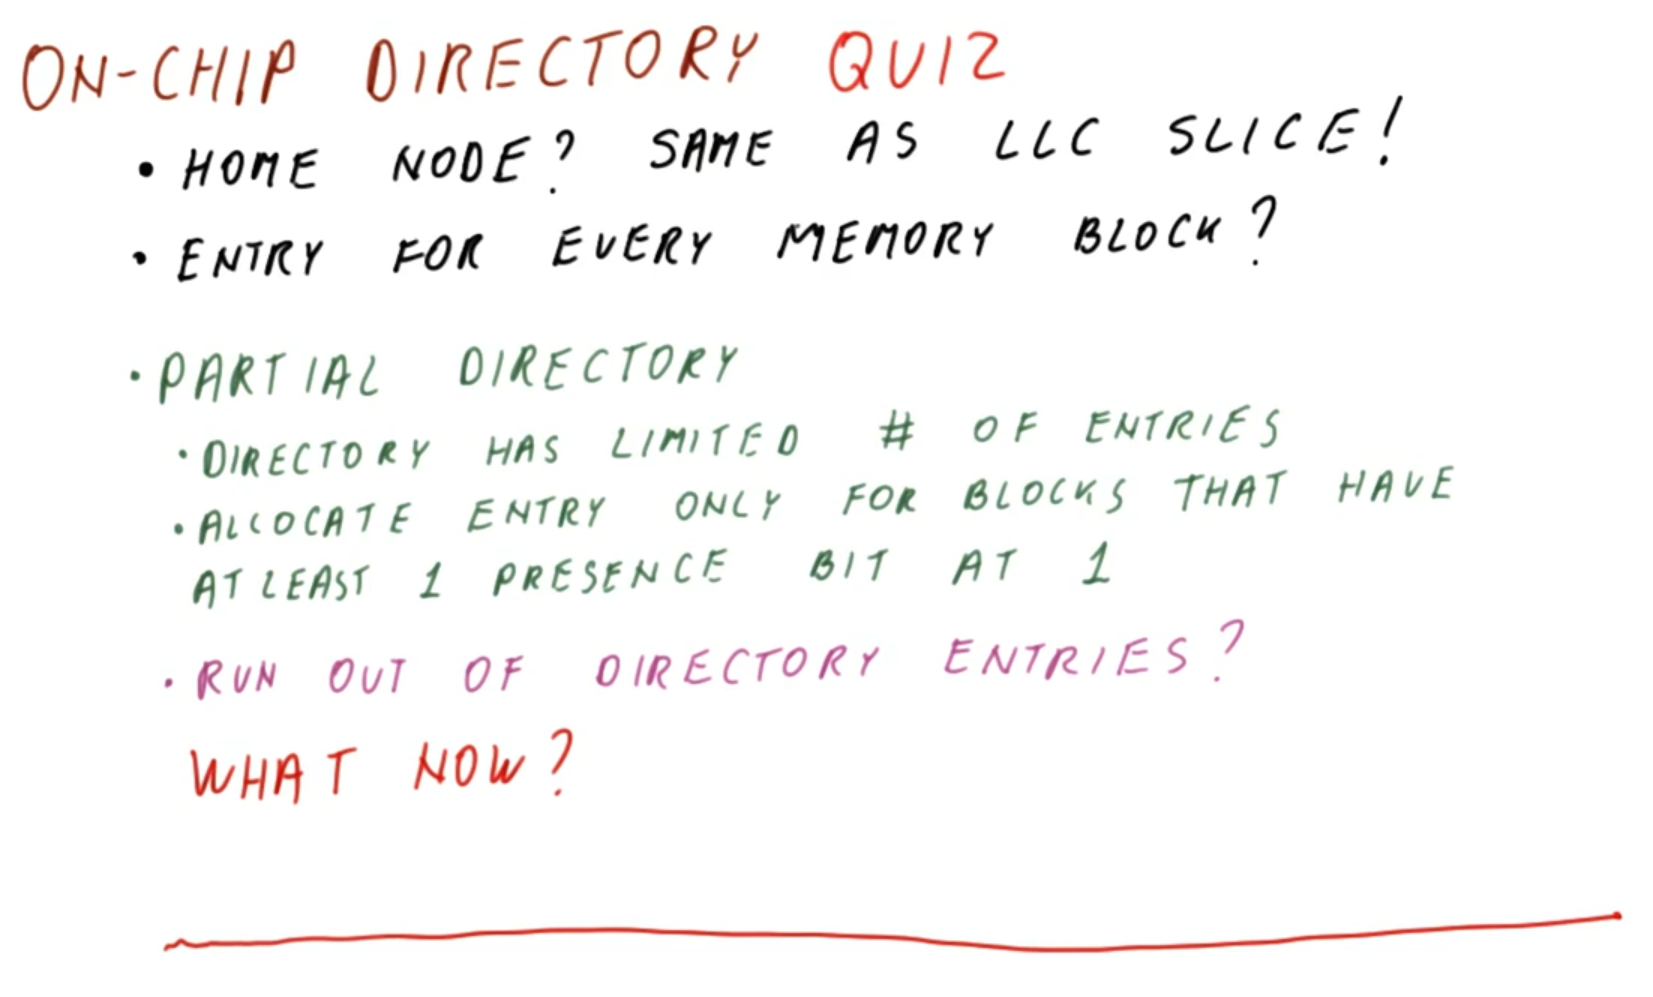 ON-CHIP DIRECTORY QUIZ
• HOME NODE? SAME AS LLC SLICE!
• ENTRY FOR EVERY MEMORY BLOCK?
• PARTIAL DIRECTORY
• DIRECTORY HAS LIMITED # OF ENTRIES
• ALLOCATE ENTRY ONLY FOR BLOCKS THAT HAVE
AT LEAST 1 PRESENCE BIT AT 1
• RUN OUT OF DIRECTORY ENTRIES?
WHAT NOW?